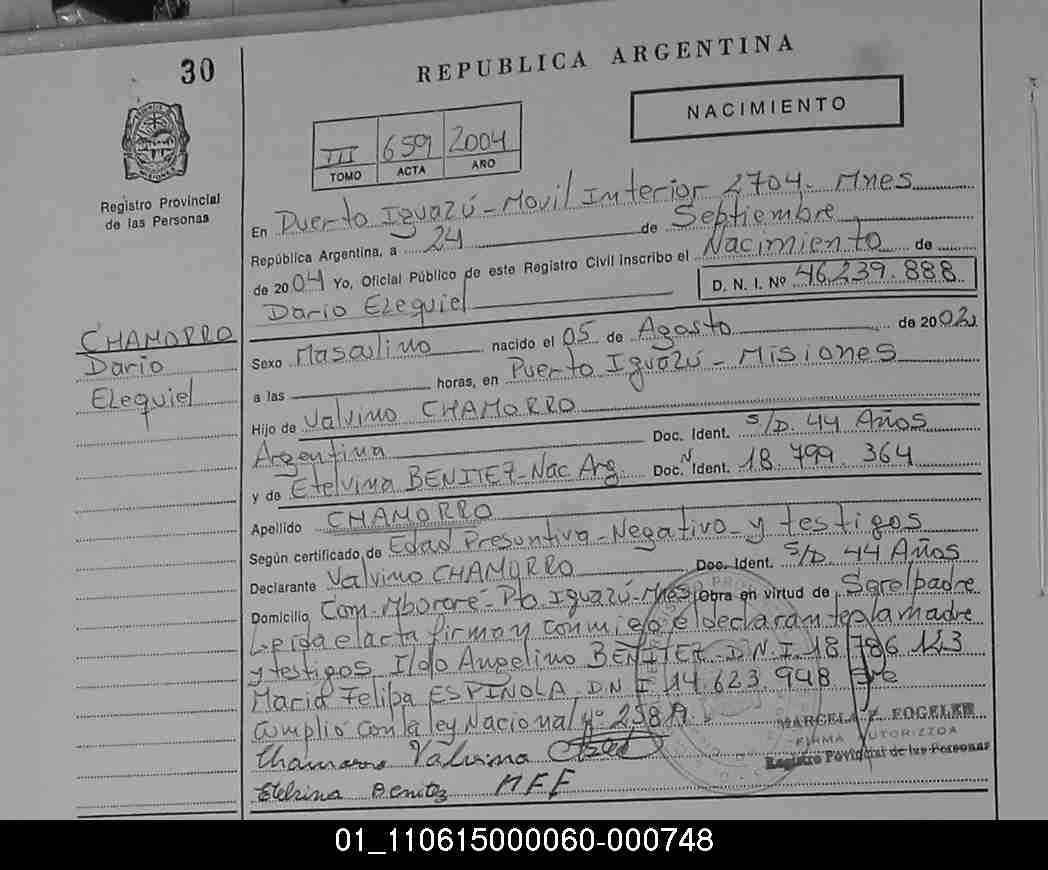 30
REPUBLICA ARGENTINA
NACIMIENTO
III 659 2004
TOMO ACTA AÑO
Registro Provincial
de las Personas
En Puerto Iguazú - Movil Interior 2704 - Mnes
República Argentina, a 24 de Septiembre
de 2004 Yo, Oficial Público de este Registro Civil inscribo el Nacimiento de
Dario Ezequiel D. N. I. Nº 46.239.888
CHAMORRO
Dario
Ezequiel
Sexo Masculino nacido el 05 de Agosto de 2002
a las horas, en Puerto Iguazú - Misiones
Hijo de Valvino CHAMORRO
Argentina Doc. Ident. S/D. 44 Años
y de Etelvina BENITEZ - Nac Arg. Doc. Ident. 18.799.364
Apellido CHAMORRO
Según certificado de Edad Presuntiva - Negativo - y testigos
Declarante Valvino CHAMORRO Doc. Ident. S/D. 44 Años
Domicilio Com. Mbororé - Pto Iguazú - Mnes obra en virtud de Ser el padre
Leida el acta firman conmigo el declarante la madre
y testigos Ildo Angelino BENITEZ - D.N.I. 18.786.123
Maria Feliba ESPINOLA D.N.I 14.623.948
cumplió con la ley Nacional Nº
MARCELA FOGELER
FIRMA AUTORIZZDA
Registro Povincial de las Personas
Chamarro Valvino
Etelvina Benitez MFE
01_110615000060-000748